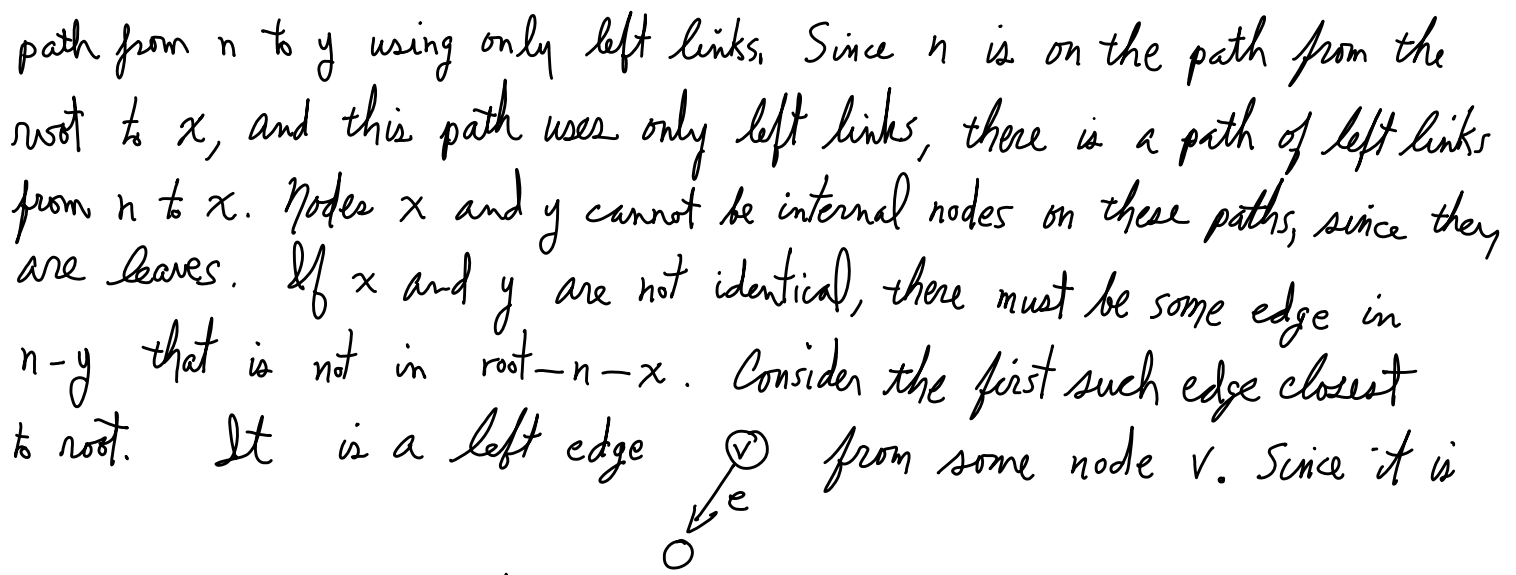 path from n to y using only left links. Since n is on the path from the
root to x, and this path uses only left links, there is a path of left links
from n to x. Nodes x and y cannot be internal nodes on these paths, since they
are leaves. If x and y are not identical, there must be some edge in
n-y that is not in root-n-x. Consider the first such edge closest
to root. It is a left edge v from some node v. Since it is
e